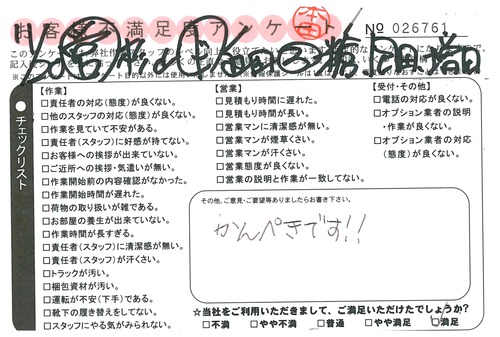 お客様不満足度アンケート
本田
No 026761
チェックリスト
【作業】
□責任者の対応(態度)が良くない。
□他のスタッフの対応(態度)が良くない。
□作業を見ていて不安がある。
□責任者(スタッフ)に好感が持てない。
□お客様への挨拶が出来ていない。
□ご近所への挨拶・気遣いが無い。
□作業開始前の内容確認がなかった。
□作業開始時間が遅れた。
□荷物の取り扱いが雑である。
□お部屋の養生が出来ていない。
□作業時間が長すぎる。
□責任者(スタッフ)に清潔感が無い。
□責任者(スタッフ)が汗くさい。
□トラックが汚い。
□梱包資材が汚い。
□運転が不安(下手)である。
□靴下の履き替えをしてない。
□スタッフにやる気がみられない。
【営業】
□見積もり時間に遅れた。
□見積もり時間が長い。
□営業マンに清潔感が無い。
□営業マンが煙草くさい。
□営業マンが汗くさい。
□営業態度が良くない。
□営業の説明と作業が一致してない。
【受付・その他】
□電話の対応が良くない。
□オプション業者の説明
・作業が良くない。
□オプション業者の対応
(態度)が良くない。
その他、ご意見・ご要望等ありましたらお書き下さい。
かんぺきです!!
☆当社をご利用いただきまして、ご満足いただけたでしょうか?
□不満 □やや不満 □普通 □やや満足 □満足